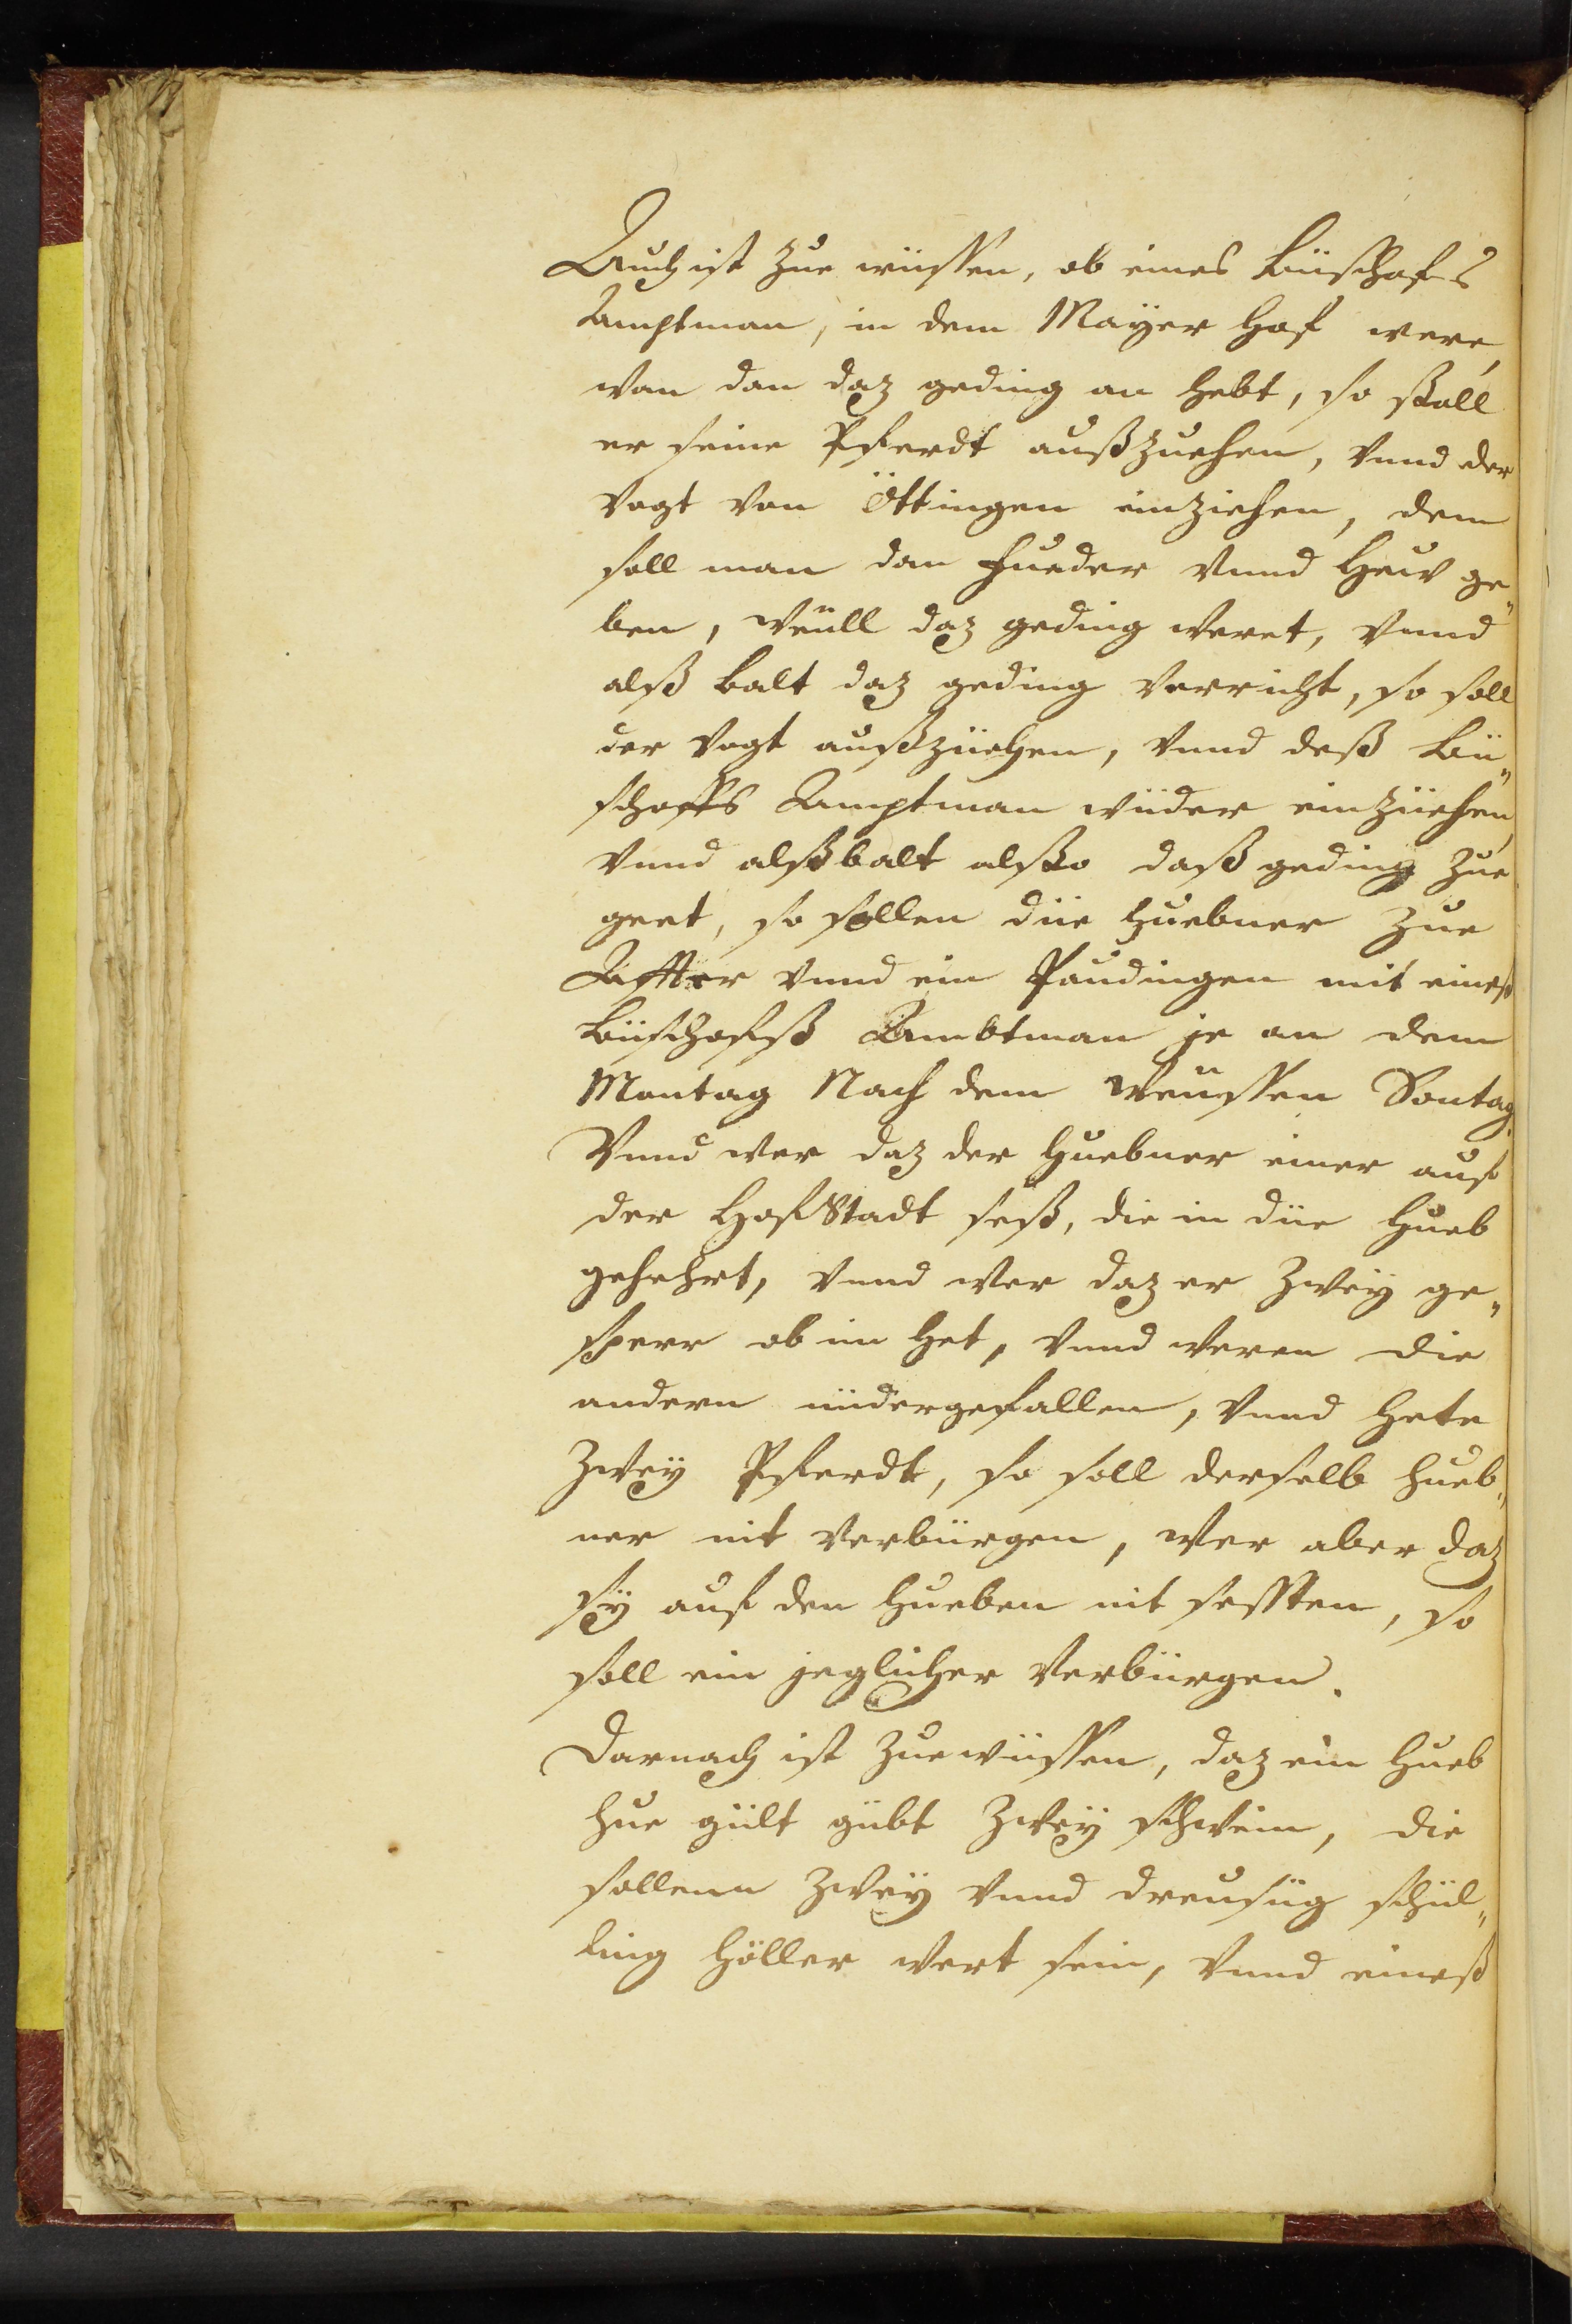 Auch ist zue wüssen, ob eines Büschofs
Amptman, in dem Mayer hof were,
wan dan daz geding an hebt, so soll
er seine Pferdt außzuehen, vnnd der
vogt von Öttingen einziehen, dem
soll man dan fueder vnnd heüw ge„
ben, weüll daz geding weret, vnnd
alß balt daz geding verricht, so soll
der vogt außzüehen, vnnd deß Bü„
schoffs Amptman wüder einzüehen,
vnnd alßbalt also daß geding zue
geet, so sollen düe huebner zue
Affter vnnd ein Paudingen mit eineß
Büschofß Ambtman je an dem
Montag Nach dem weüssen Sontag.
Vnnd wer daz der huebner einer auf
der hofStadt seß, die in düe hueb
gehehrt, vnnd wer daz er zwey ge„
sperr ob im het, vnnd weren die
andern nüdergefallen, vnnd hete
zwey Pferdt, so soll derselb hueb„
ner nit verbürgen, wer aber daz
sy auf den hueben nit sessten, so
soll ein jeglicher verbürgen.
Darnach ist zuewüssen, daz ein hueb
hue gült gübt zwey schwein, die
sollenn zwey vnnd dreusüg schül„
ling höller wert sein, vnnd eineß